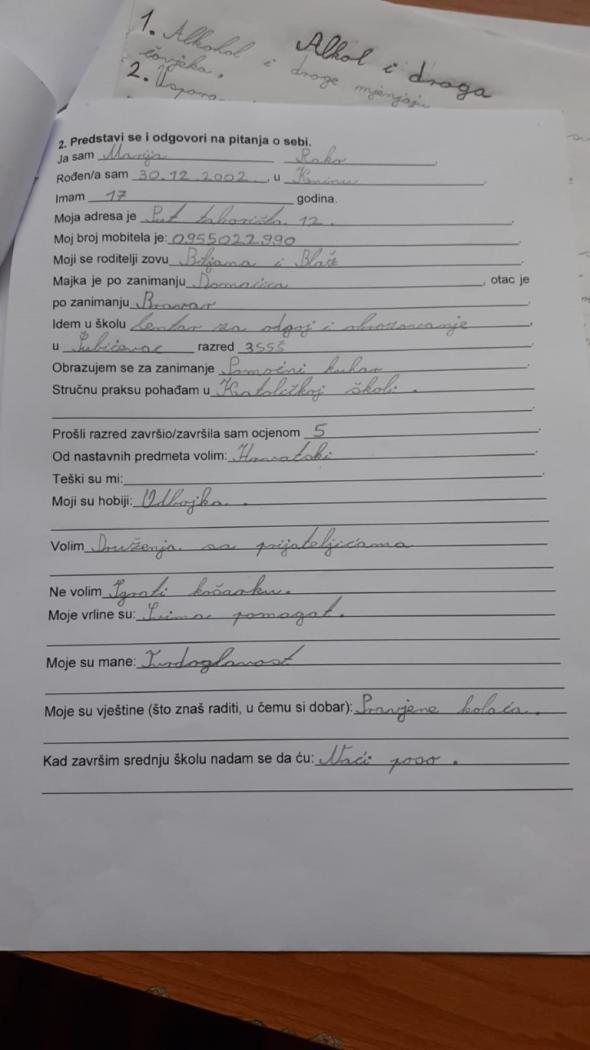 1. Alkohol i droge mjenjaju
čovjeka.
Alkol i droga
2. Uspora
2. Predstavi se i odgovori na pitanja o sebi.
Ja sam Marija Rako
Rođen/a sam 30.12.2002, u Kninu
Imam 17 godina.
Moja adresa je Put 12.
Moj broj mobitela je: 0955022990
Moji se roditelji zovu Biljana i Blaž
Majka je po zanimanju Domaćica, otac je
po zanimanju Bravar
Idem u školu Centar za odgoj i obrazovanje
u Šubićevac razred 3SSŠ
Obrazujem se za zanimanje Pomoćni kuhar
Stručnu praksu pohađam u Katoličkoj školi.
Prošli razred završio/završila sam ocjenom 5
Od nastavnih predmeta volim: Hrvatski
Teški su mi:
Moji su hobiji: Odbojka.
Volim Druženja sa prijateljicama
Ne volim Igrati košarku.
Moje vrline su: Svima pomagat.
Moje su mane: Tvrdoglavost
Moje su vještine (što znaš raditi, u čemu si dobar): Pravjene kolača.
Kad završim srednju školu nadam se da ću: Naći poso.